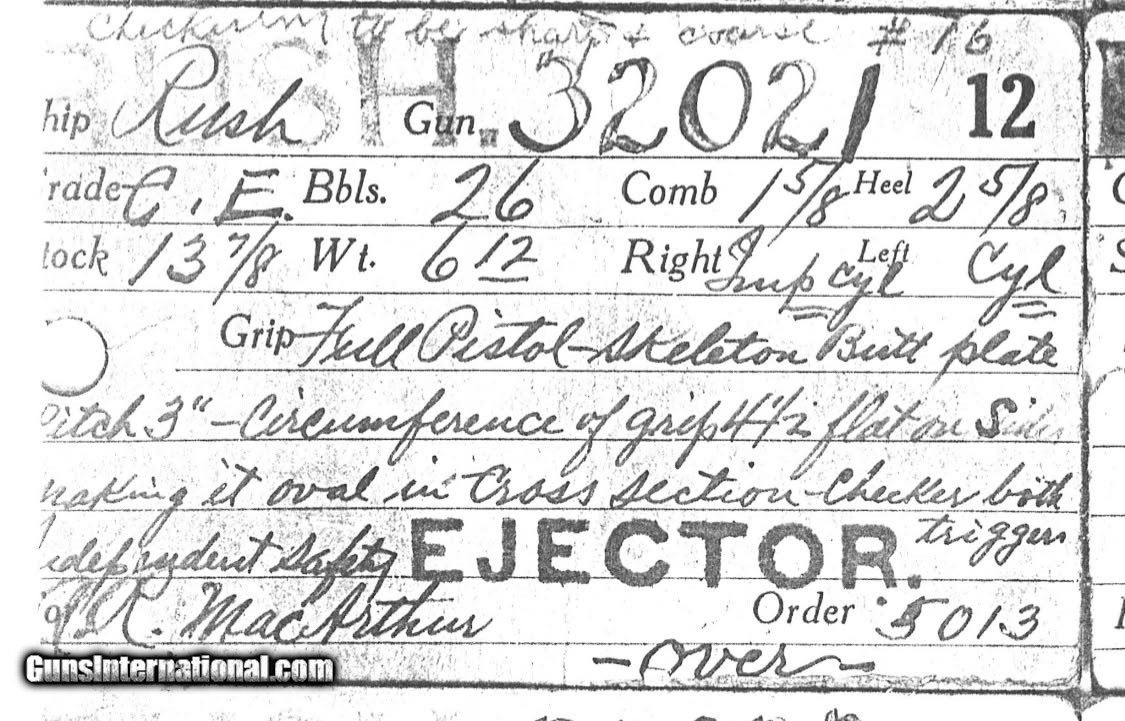 Checkering to be sharp & coarse # 16
RUSH.
hip Rush Gun. 32021 12
rade C. E. Bbls. 26 Comb 1 5/8 Heel 2 5/8
tock 13 7/8 Wt. 6 12 Right Imp cyl Left Cyl
Grip Full Pistol - Skeleton Butt plate
Pitch 3" - Circumference of grip 4 1/2 flat on Sides
making it oval in Cross section - Checker both
triggers
independent safety EJECTOR.
R. MacArthur Order 5013
- over -
GunsInternational.com